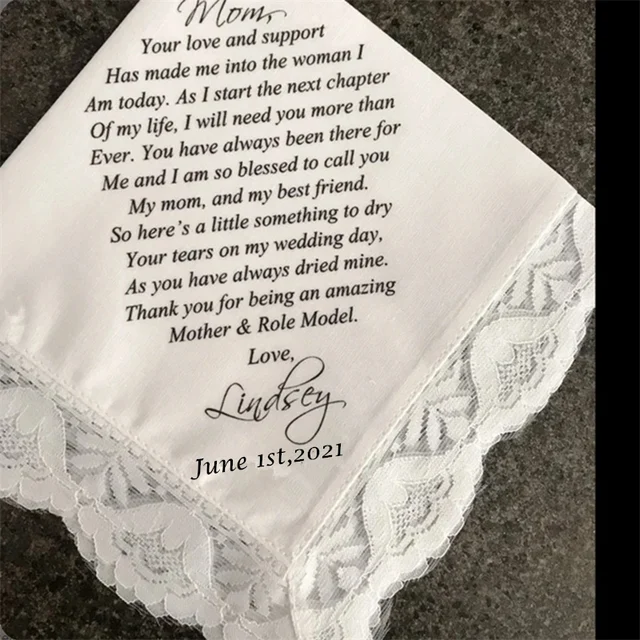 Mom,
Your love and support
Has made me into the woman I
Am today. As I start the next chapter
Of my life, I will need you more than
Ever. You have always been there for
Me and I am so blessed to call you
My mom, and my best friend.
So here's a little something to dry
Your tears on my wedding day,
As you have always dried mine.
Thank you for being an amazing
Mother & Role Model.
Love,
Lindsey
June 1st,2021